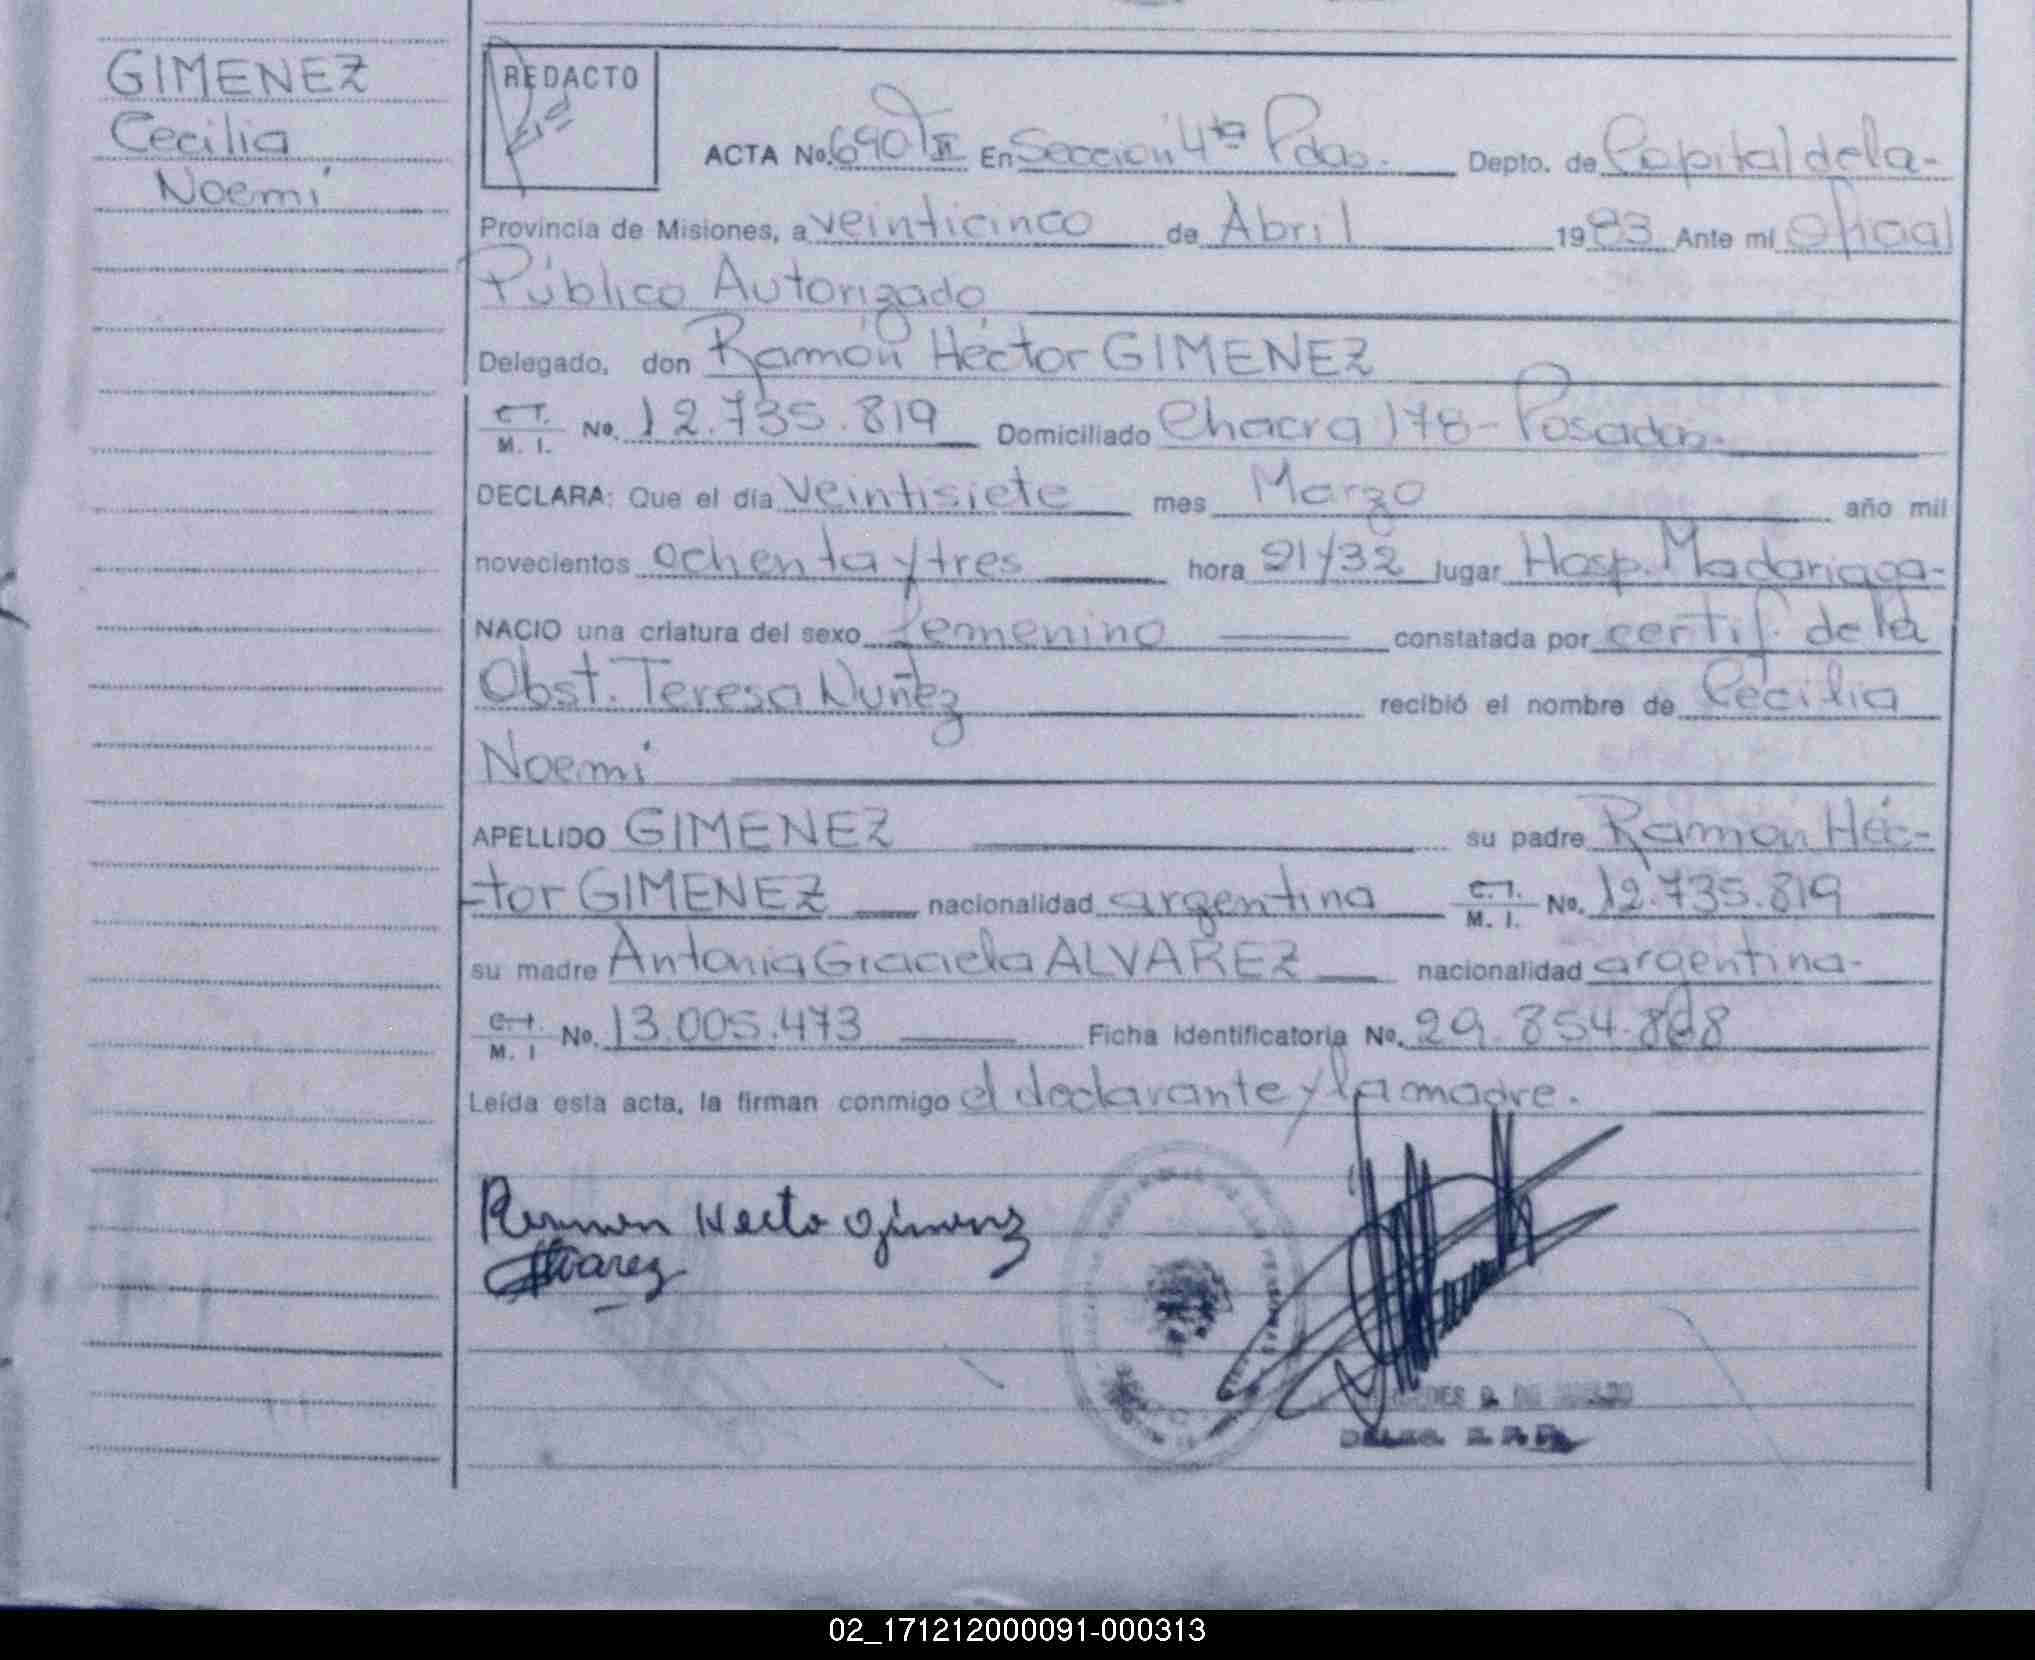 GIMENEZ
Cecilia
Noemí
REDACTO
ACTA No. 690 T II En Sección 4ta Pdas. Depto. de Capital de la
Provincia de Misiones, a veinticinco de Abril 1983 Ante mi Oficial
Público Autorizado
Delegado, don Ramón Héctor GIMENEZ
C.I. M. I. No. 12.735.819 Domiciliado Chacra 178 - Posadas.
DECLARA: Que el día veintisiete mes Marzo año mil
novecientos ochenta y tres hora 21/32 lugar Hosp. Madariaga-
NACIO una criatura del sexo femenino constatada por certif. de la
Obst. Teresa Nuñez recibió el nombre de Cecilia
Noemí
APELLIDO GIMENEZ su padre Ramón Héc-
-tor GIMENEZ nacionalidad argentina C.I. M. I. No. 12.735.819
su madre Antonia Graciela ALVAREZ nacionalidad argentina-
C.I. M. I No. 13.005.473 Ficha Identificatoria No. 29.854.868
Leída esta acta, la firman conmigo el declarante y la madre.
Ramon Hecto Gimenz
Alvarez
02_171212000091-000313